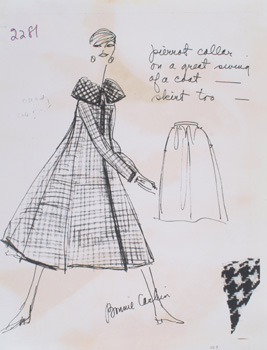 2281
pierrot collar
on a great swing
of a coat —
skirt too —
Bonnie Cashin